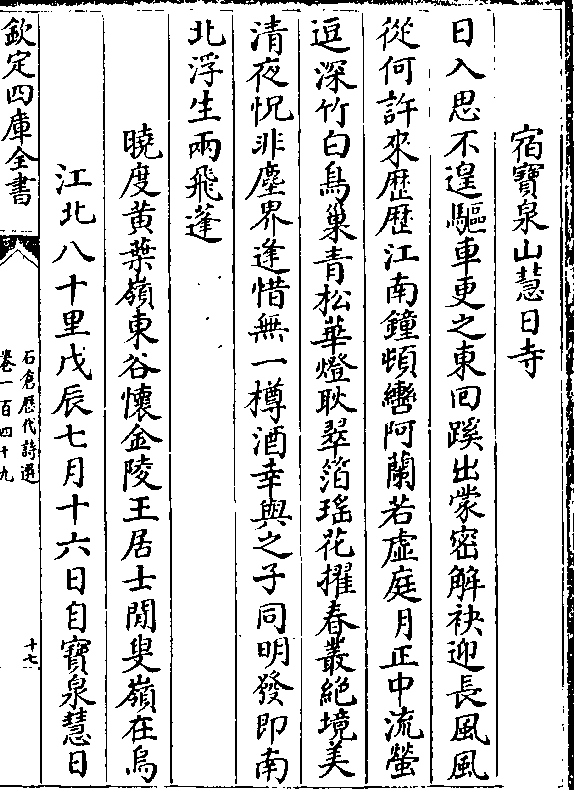 宿寶泉山慧日寺
日入思不遑驅車更之東回蹊出蒙密解袂迎長風風
從何許來歴歴江南鐘頓轡阿蘭若虚庭月正中流螢
逗深竹白鳥巢青松華燈耿翠箔瑤花擢春叢絶境美
清夜怳非塵界逢惜無一樽酒幸與之子同明發即南
北浮生兩飛蓬
曉度黄葉嶺東谷懷金陵王居士閒叟嶺在烏
江北八十里戊辰七月十六日自寳泉慧日
欽定四庫全書
石倉歴代詩選
卷一百四十九
十七